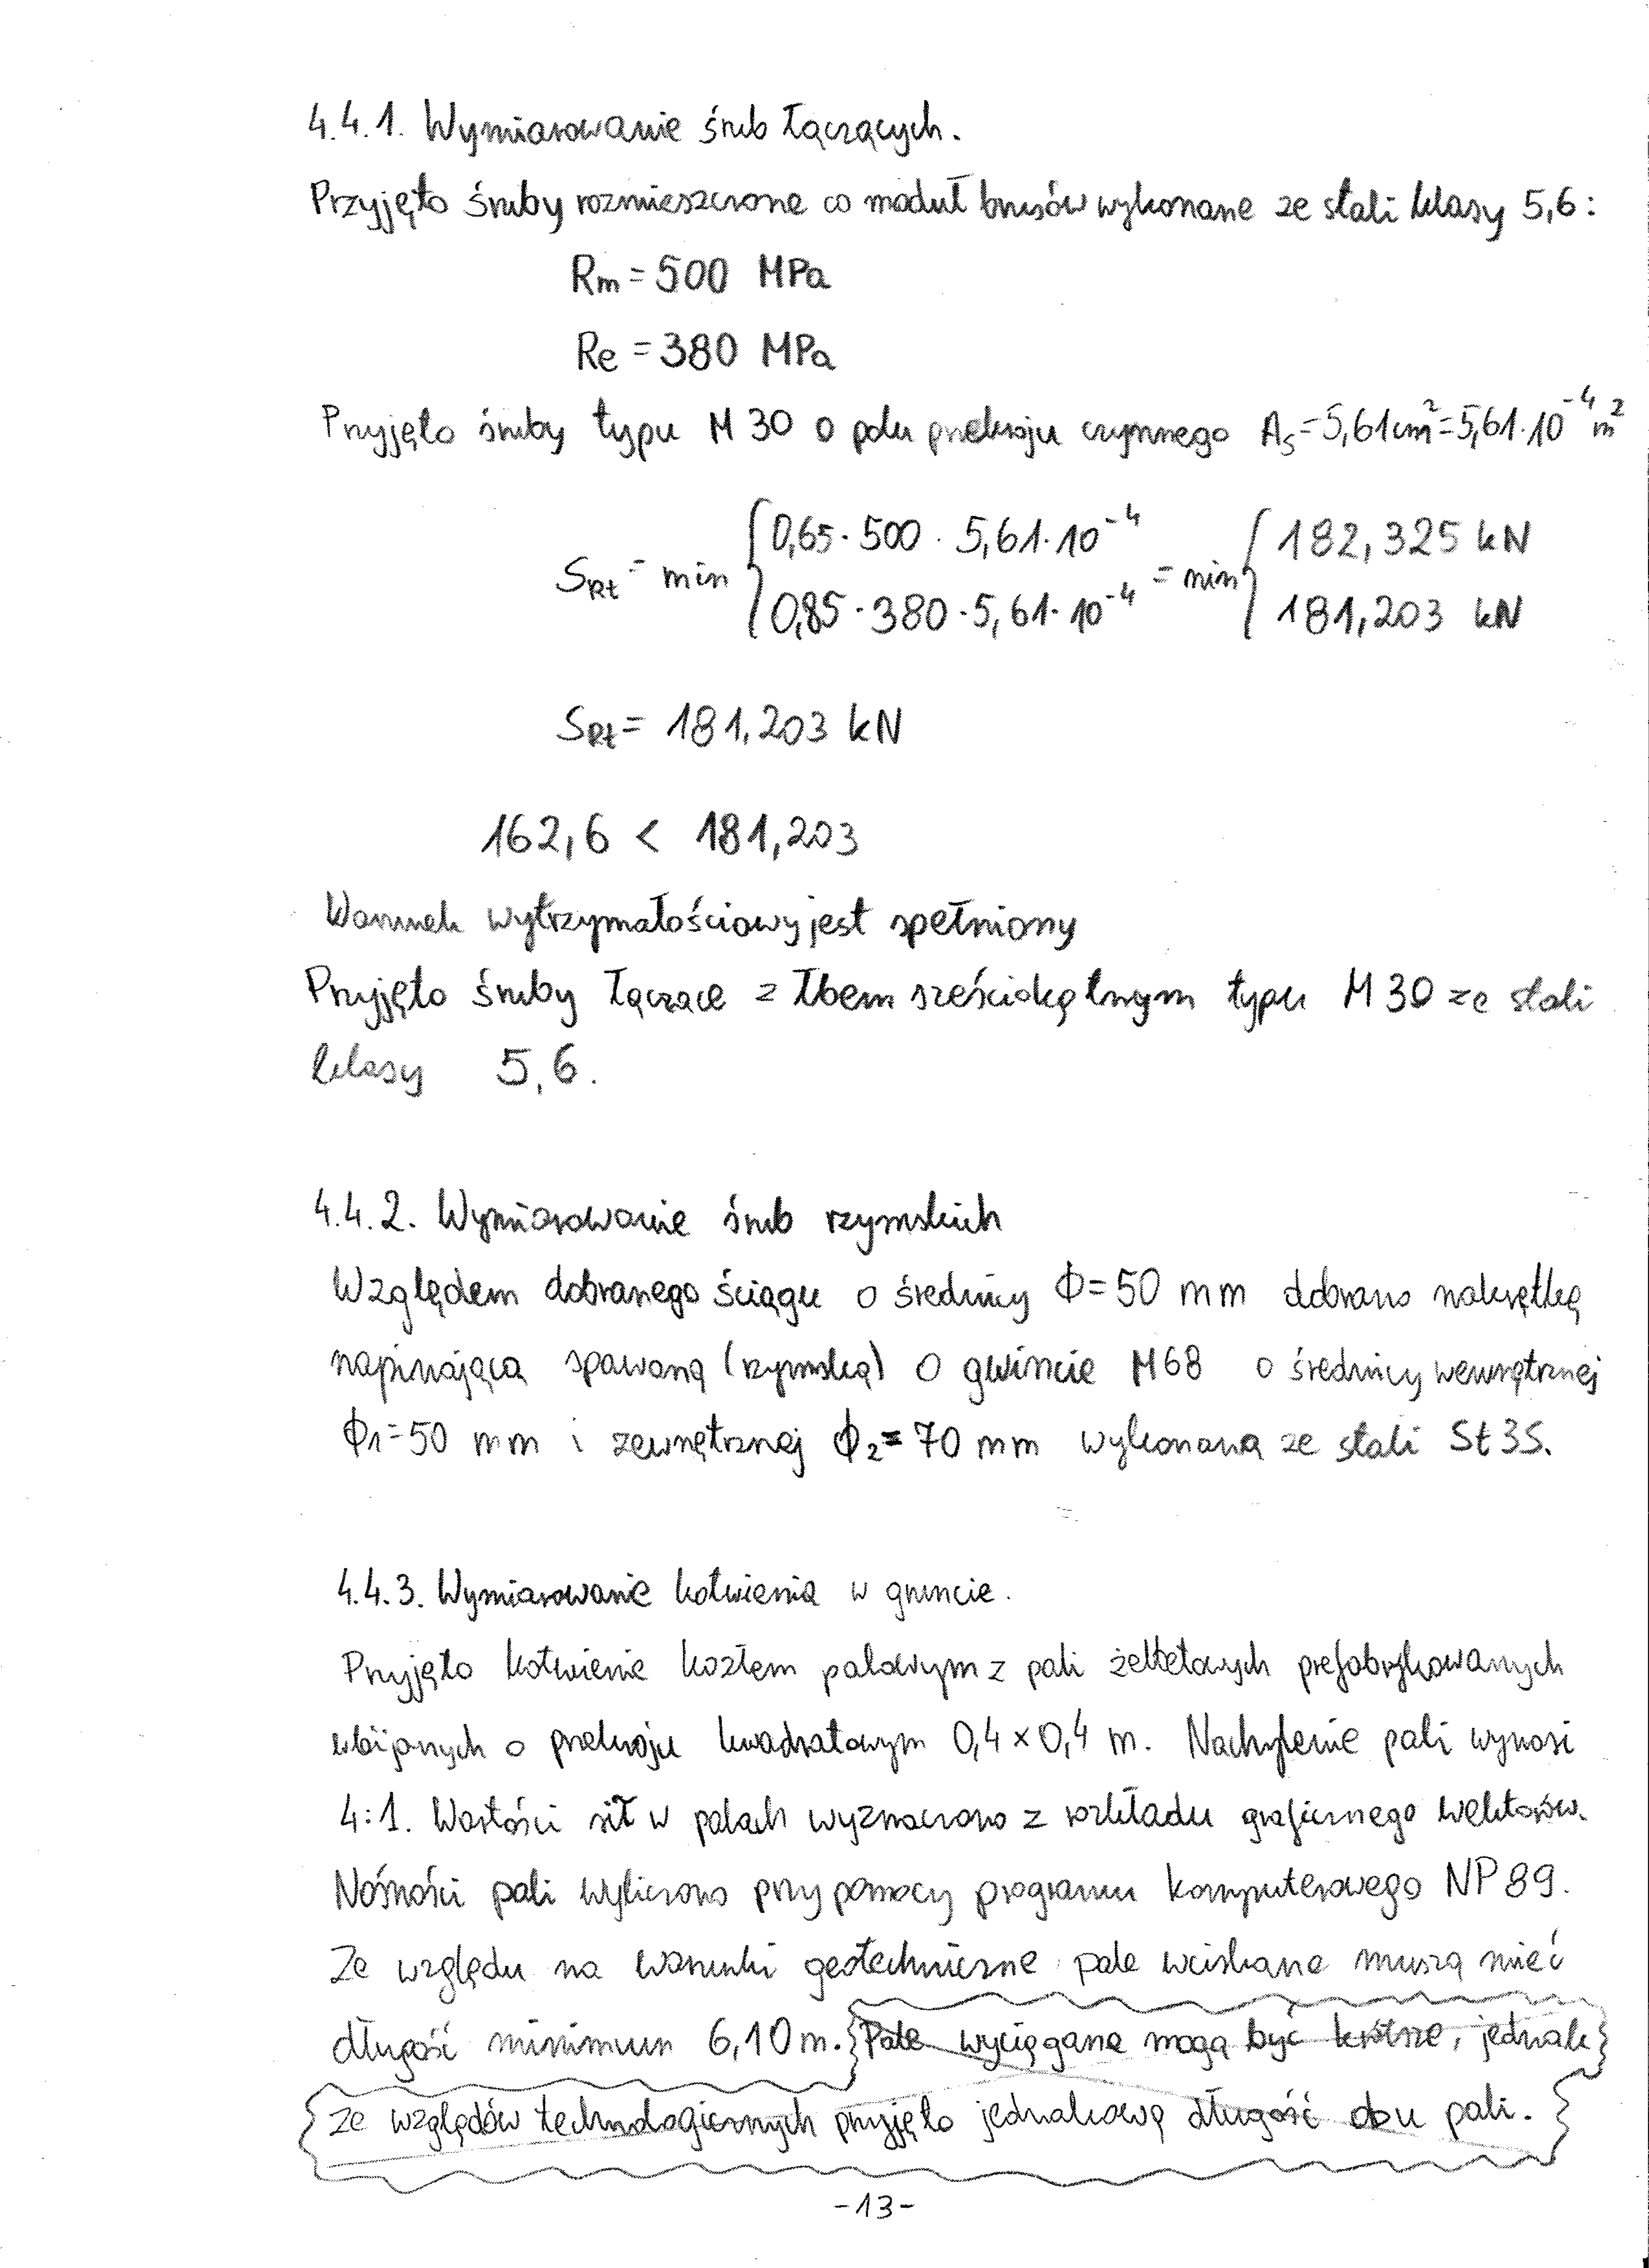 4.4.1. Wymiarowanie śrub łączących.
Przyjęto śruby rozmieszczone co moduł brusów wykonane ze stali klasy 5,6:
Rm = 500 MPa
Re = 380 MPa
Przyjęto śruby typu M 30 o polu przekroju czynnego As = 5,61 cm² = 5,61·10⁻⁴ m²
SRt = min { 0,65 · 500 · 5,61·10⁻⁴ = min { 182,325 kN
0,85 · 380 · 5,61·10⁻⁴ 181,203 kN
SRt = 181,203 kN
162,6 < 181,203
Warunek wytrzymałościowy jest spełniony
Przyjęto śruby łączące z łbem sześciokątnym typu M 30 ze stali
klasy 5,6.
4.4.2. Wymiarowanie śrub rzymskich
Względem dobranego ściągu o średnicy Φ = 50 mm dobrano nakrętkę
napinającą spawaną (rzymską) o gwincie M68 o średnicy wewnętrznej
Φ1 = 50 mm i zewnętrznej Φ2 = 70 mm wykonaną ze stali St3S.
4.4.3. Wymiarowanie kotwienia w gruncie.
Przyjęto kotwienie kozłem palowym z pali żelbetowych prefabrykowanych
wbijanych o przekroju kwadratowym 0,4 x 0,4 m. Nachylenie pali wynosi
4:1. Wartości sił w palach wyznaczono z rozkładu graficznego wektorów.
Nośności pali wyliczono przy pomocy programu komputerowego NP 89.
Ze względu na warunki geotechniczne pale wciskane muszą mieć
długość minimum 6,10 m. Pale wyciągane mogą być krótsze, jednak
ze względów technologicznych przyjęto jednakową długość obu pali.
-13-